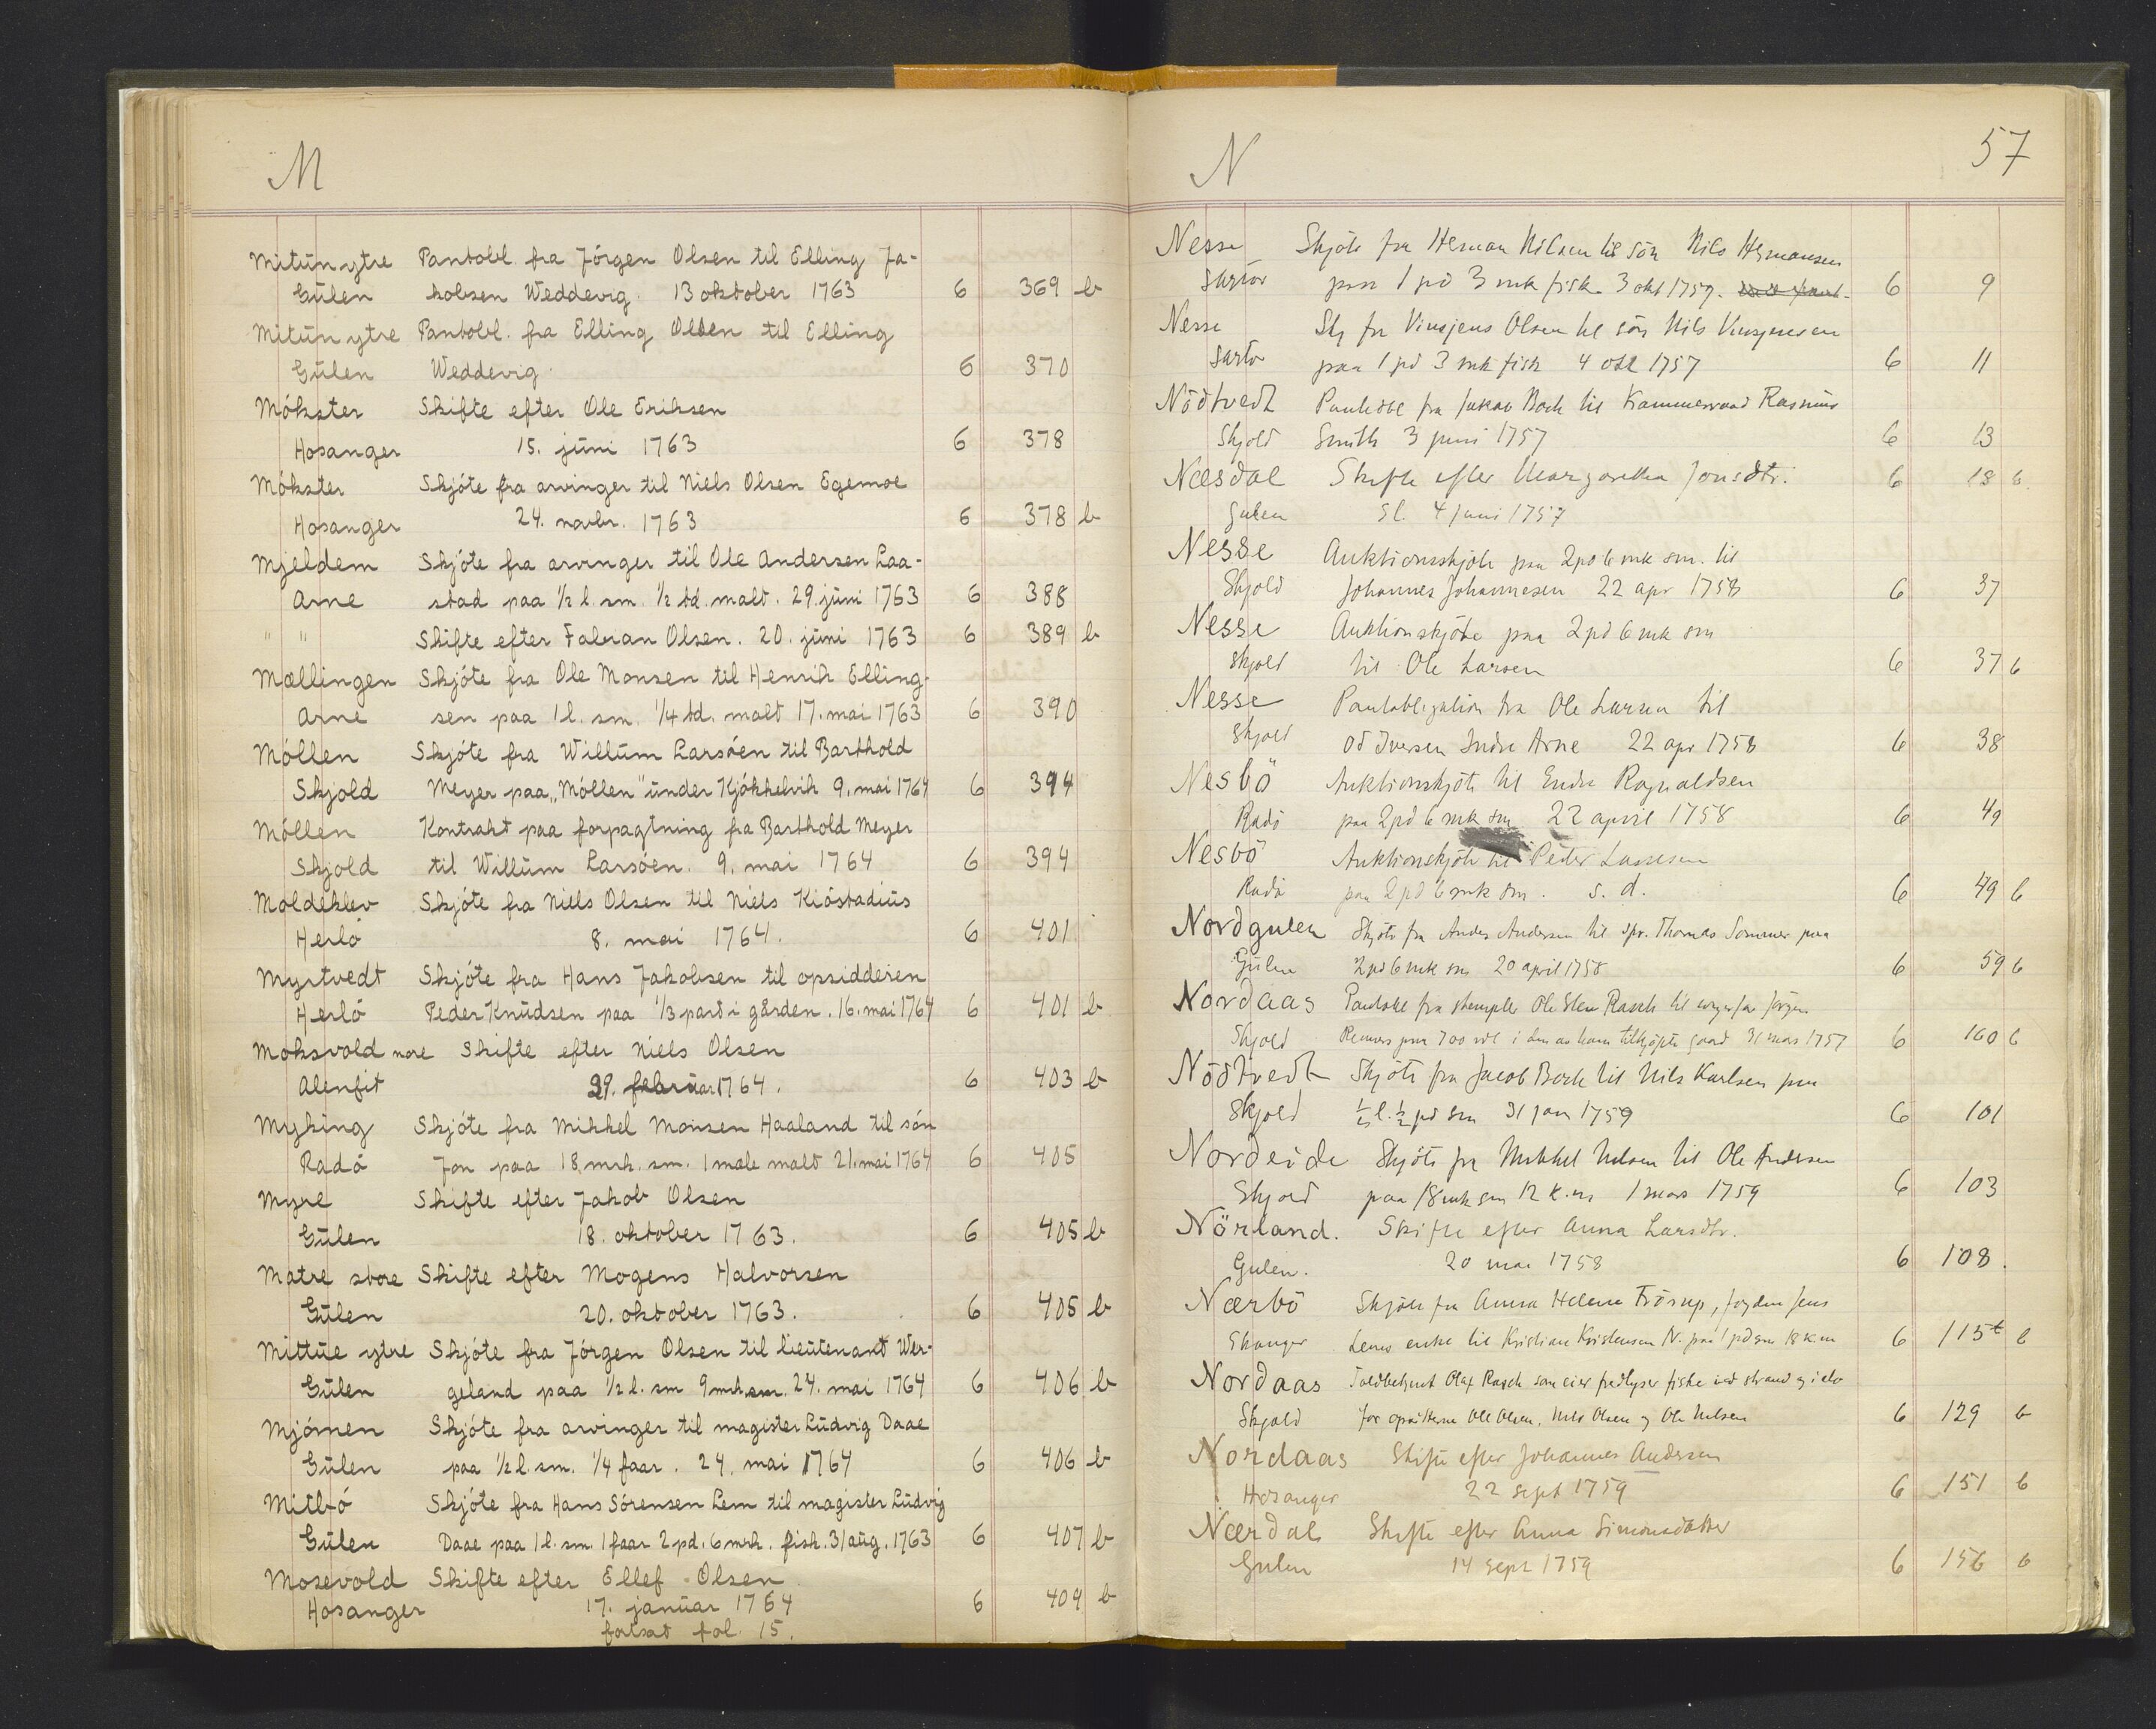 M
Mitun ytre Pantobl. fra Jörgen Olsen til Elling Ja-
Gulen kobsen Weddevig. 13 oktober 1763 6 369 b
Mitun ytre Pantobl. fra Elling Olsen til Elling
Gulen Weddevig. 6 370
Mökster Skifte efter Ole Eriksen
Hosanger 15. juni 1763 6 378
Mökster Skjöte fra arvinger til Niels Olsen Egemoe
Hosanger 24. novbr. 1763 6 378 b
Mjeldem Skjöte fra arvinger til Ole Andersen Laa-
Arne stad paa 1/2 l. sm. 1/2 td. malt. 29. juni 1763 6 388
" " Skifte efter Fabian Olsen. 20. juni 1763 6 389 b
Mællingen Skjöte fra Ole Monsen til Henrik Elling-
Arne sen paa 1 l. sm. 1/4 td. malt 17. mai 1763 6 390
Möllen Skjöte fra Willum Larsöen til Barthold
Skjold Meyer paa „Möllen" under Kjökkelvik 9. mai 1764 6 394
Möllen Kontrakt paa forpagtning fra Barthold Meyer
Skjold til Willum Larsöen. 9. mai 1764 6 394
Moldeklev Skjöte fra Niels Olsen til Niels Kiöstadius
Herlö 8. mai 1764. 6 401
Myrtvedt Skjöte fra Hans Jakobsen til opsidderen
Herlö Peder Knudsen paa 1/3 part i gården. 16. mai 1764 6 401 b
Moksvold nore Skifte efter Niels Olsen
Alenfit 29. februar 1764. 6 403 b
Myking Skjöte fra Mikkel Monsen Haaland til sön
Radö Jon paa 18 mrk. sm. 1 mæle malt 21. mai 1764 6 405
Myre Skifte efter Jakob Olsen
Gulen 18. oktober 1763. 6 405 b
Matre store Skifte efter Mogens Halvorsen
Gulen 20. oktober 1763. 6 405 b
Mittue ytre Skjöte fra Jörgen Olsen til lieutenant Wer-
Gulen geland paa 1/2 l. sm 9 mrk. sm. 24. mai 1764 6 406 b
Mjömen Skjöte fra arvinger til magister Ludvig Daae
Gulen paa 1/2 l. sm. 1/4 faar. 24. mai 1764 6 406 b
Mitbö Skjöte fra Hans Sörensen Lem til magister Ludvig
Gulen Daae paa 1 l. sm. 1 faar 2 pd. 6 mrk. fisk. 31 aug. 1763 6 407 b
Mosevold Skifte efter Ellef Olsen
Hosanger 17. januar 1764 6 409 b
fortsat fol. 15.
N 57
Nesse Skjöte fra Herman Nilsen til sön Nils Hermansen
Sartor paa 1 pd 3 mk fisk. 3 okt 1757. 6 9
Nesse Skj fra Vinsjens Olsen til sön Nils Vinsjensen
Sartor paa 1 pd 3 mk fisk 4 okt 1757 6 11
Nödtvedt Pantobl fra Jakob Bock til Kammerraad Rasmus
Skjold Smith 3 juni 1757 6 13
Næsdal Skifte efter Margaretha Jonsdtr. 6 18 b.
Gulen Sl. 4 juni 1757
Nesse Auktionsskjöte paa 2 pd 6 mk sm. til
Skjold Johannes Johannesen 22 apr 1758 6 37
Nesse Auktionskjöte paa 2 pd 6 mk sm
Skjold til Ole Larsen 6 37 b
Nesse Pantobligation fra Ole Larsen til
Skjold Od Iversen Indre Arne 22 apr 1758 6 38
Nesbö Auktionskjöte til Endre Ragnaldsen
Radö paa 2 pd 6 mk sm 22 april 1758 6 49
Nesbö Auktionskjöte til Peder Lassesen
Radö paa 2 pd 6 mk sm. s. d. 6 49 b
Nordgulen Skjöte fra Anders Andersen til spr. Thomas Sommer paa
Gulen 2 pd 6 mk sm 20 april 1758 6 59 b
Nordaas Pantobl fra stempler Ole Sten Rasch til Jörgen
Skjold Remers paa 700 rdl i den av ham tilkjöpte gaard 31 mars 1757 6 160 b
Nödtvedt Skjöte fra Jacob Bock til Nils Karlsen paa
Skjold 1/2 l. 1/2 pd sm 31 jan 1759 6 101
Nordeide Skjöte fra Mikkel Nilsen til Ole Andersen
Skjold paa 18 mk sm 12 k. m 1 mars 1759 6 103
Nörland. Skifte efter Anna Larsdtr.
Gulen. 20 mai 1758 6 108.
Nærbö Skjöte fra Anna Helene Frörup, fogden Jens
Ekanger Lems enke til Kristian Kristensen N. paa 1 pd sm 18 k m 6 115t b
Nordaas Toldbetjent Olaf Rasch som eier fredlyser fiske ved strand og i elv
Skjold for opsitterne Ole Olsen, Nils Olsen og Ole Nilsen 6 129 b
Nordaas Skifte efter Johannes Andersen
Hosanger 22 sept 1759 6 151 b
Nærdal Skifte efter Anna Simonsdatter
Gulen 14 sept 1759 6 156 b